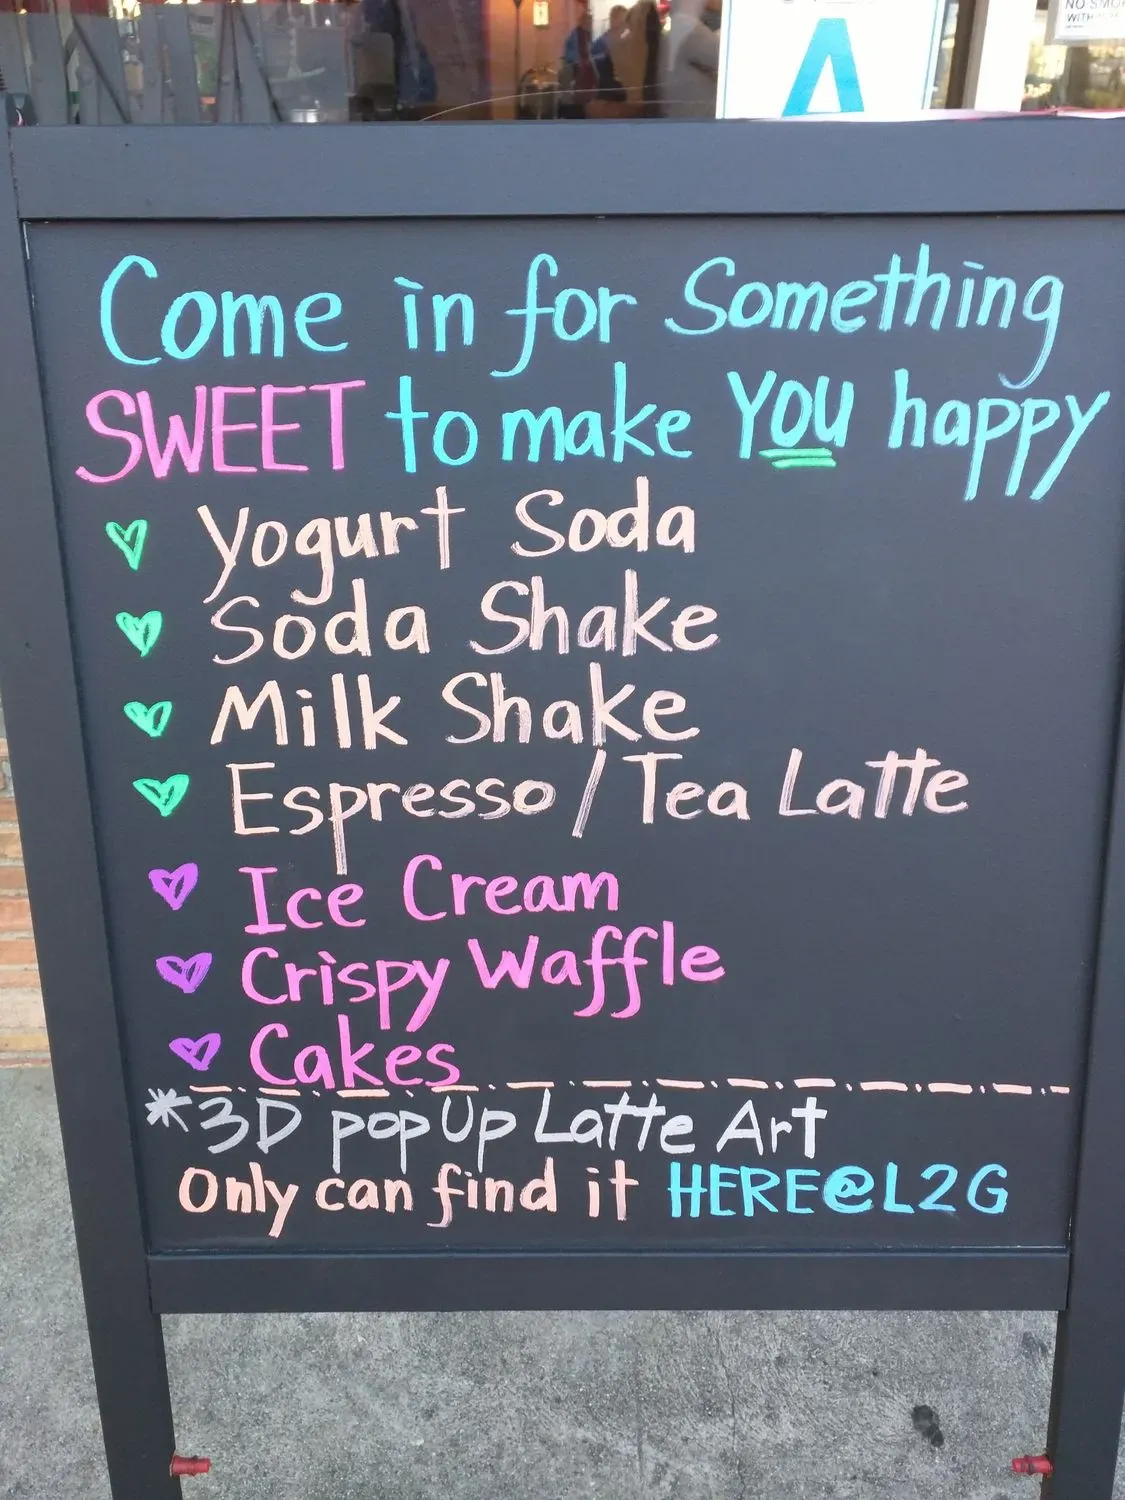 A
NO SMO
WITH
Come in for Something
SWEET to make YOU happy
Yogurt Soda
Soda Shake
Milk Shake
Espresso / Tea Latte
Ice Cream
Crispy Waffle
Cakes
*3D pop Up Latte Art
Only can find it HERE@L2G